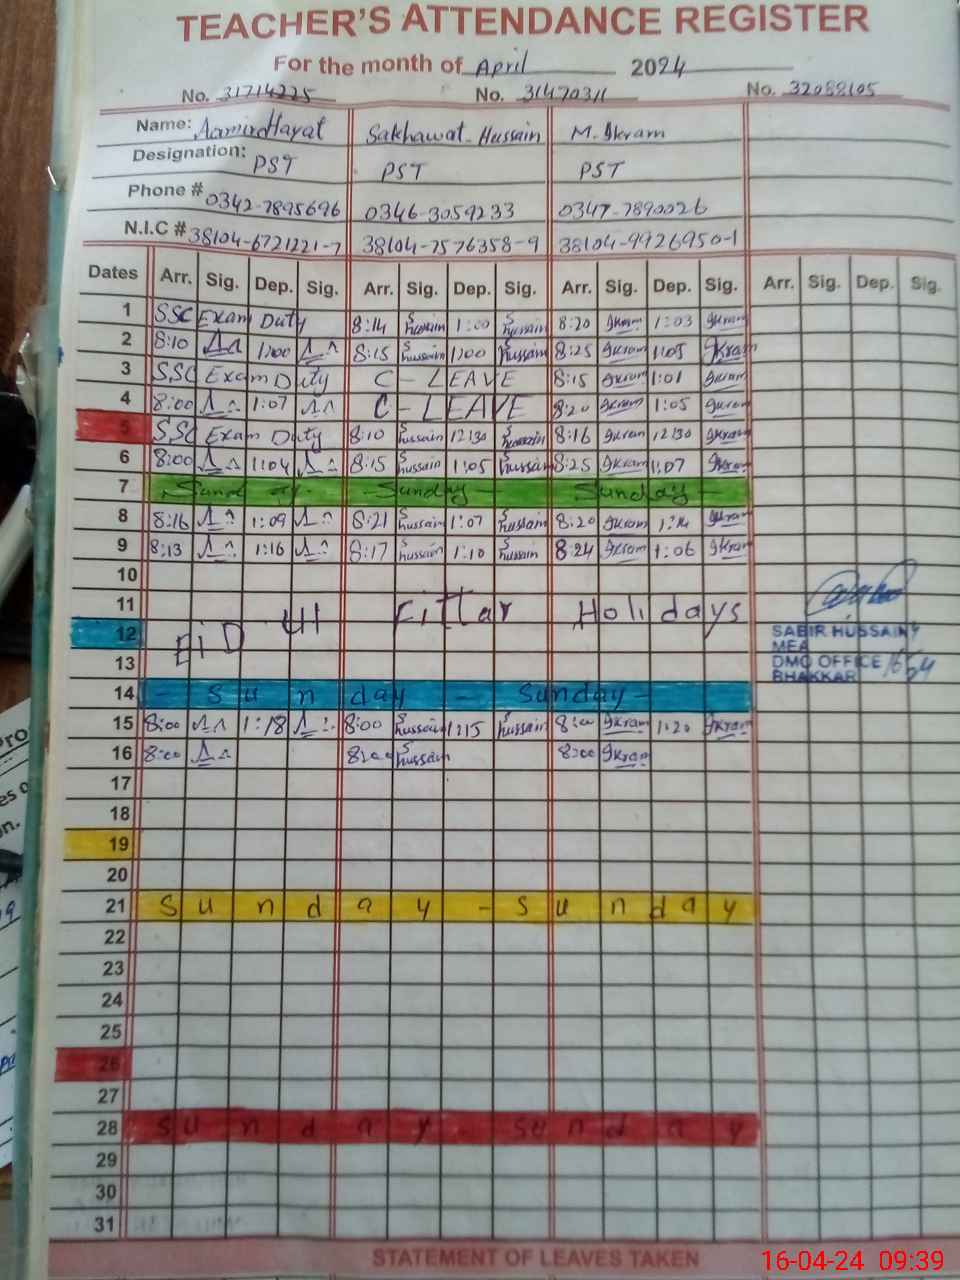 TEACHER'S ATTENDANCE REGISTER
For the month of April 2024
No. 31714225 No. 31470311 No. 32088105
Name: Aamir Hayat Sakhawat Hussain M. Ikram
Designation: PST PST PST
Phone # 0342-7895696 0346-3059233 0347-7890026
N.I.C # 38104-6721221-7 38104-7576358-9 38104-9926950-1
Dates Arr. Sig. Dep. Sig. Arr. Sig. Dep. Sig. Arr. Sig. Dep. Sig. Arr. Sig. Dep. Sig.
1 SSC Exam Duty 8:14 S hussain 1:00 S hussain 8:20 Ikram 1:03 Ikram
2 8:10 1:00 8:15 S hussain 1:00 S hussain 8:25 Ikram 1:05 Ikram
3 S,SC Exam Duty C - LEAVE 8:15 Ikram 1:01 Ikram
4 8:00 1:07 C - LEAVE 8:20 Ikram 1:05 Ikram
5 S,SC Exam Duty 8:10 S hussain 12:30 S hussain 8:16 Ikram 12:30 Ikram
6 8:00 1:04 8:15 S hussain 1:05 S hussain 8:25 Ikram 1:07 Ikram
7 Sunday - Sunday - Sunday -
8 8:16 1:09 8:21 S hussain 1:07 S hussain 8:20 Ikram 1:14 Ikram
9 8:13 1:16 8:17 S hussain 1:10 S hussain 8:24 Ikram 1:06 Ikram
10
11
12 EiD Ul Fittar Holidays
SABIR HUSSAIN
MEA
13
DMO OFFICE
BHAKKAR
14 - Sunday - Sunday -
15 8:00 1:18 8:00 S hussain 1:15 S hussain 8:00 Ikram 1:20 Ikram
16 8:00 8:00 S hussain 8:00 Ikram
17
18
19
20
21 Sunday - Sunday
22
23
24
25
26
27
28 Sunday - Sunday
29
30
31
STATEMENT OF LEAVES TAKEN
16-04-24 09:39